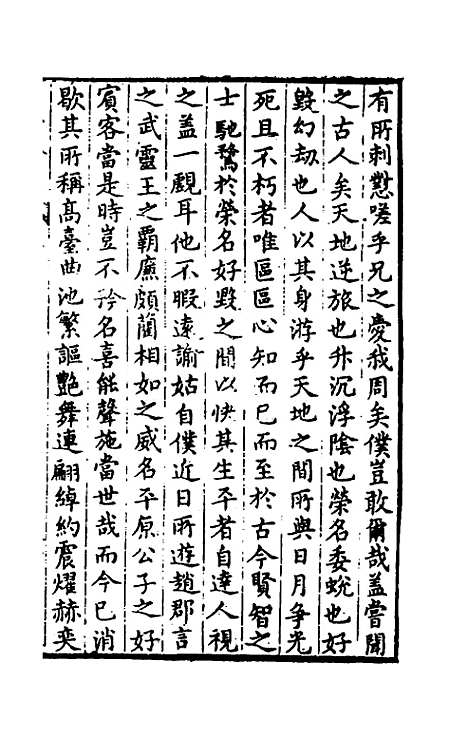 有所刺懟嗟乎兄之愛我周矣僕豈敢爾哉盖嘗聞
之古人矣天地逆旅也升沉浮陰也榮名委蛻也好
毀幻劫也人以其身游乎天地之間所與日月爭光
死且不朽者唯區區心知而已而至於古今賢智之
士馳騖於榮名好毀之間以快其生平者自達人視
之盖一覷耳他不暇遠諭姑自僕近日所遊趙郡言
之武靈王之霸廉頗藺相如之威名平原公子之好
賓客當是時豈不矜名喜能聲施當世哉而今已消
歇其所稱高臺曲池繁謳艷舞連翩綽約震燿赫奕